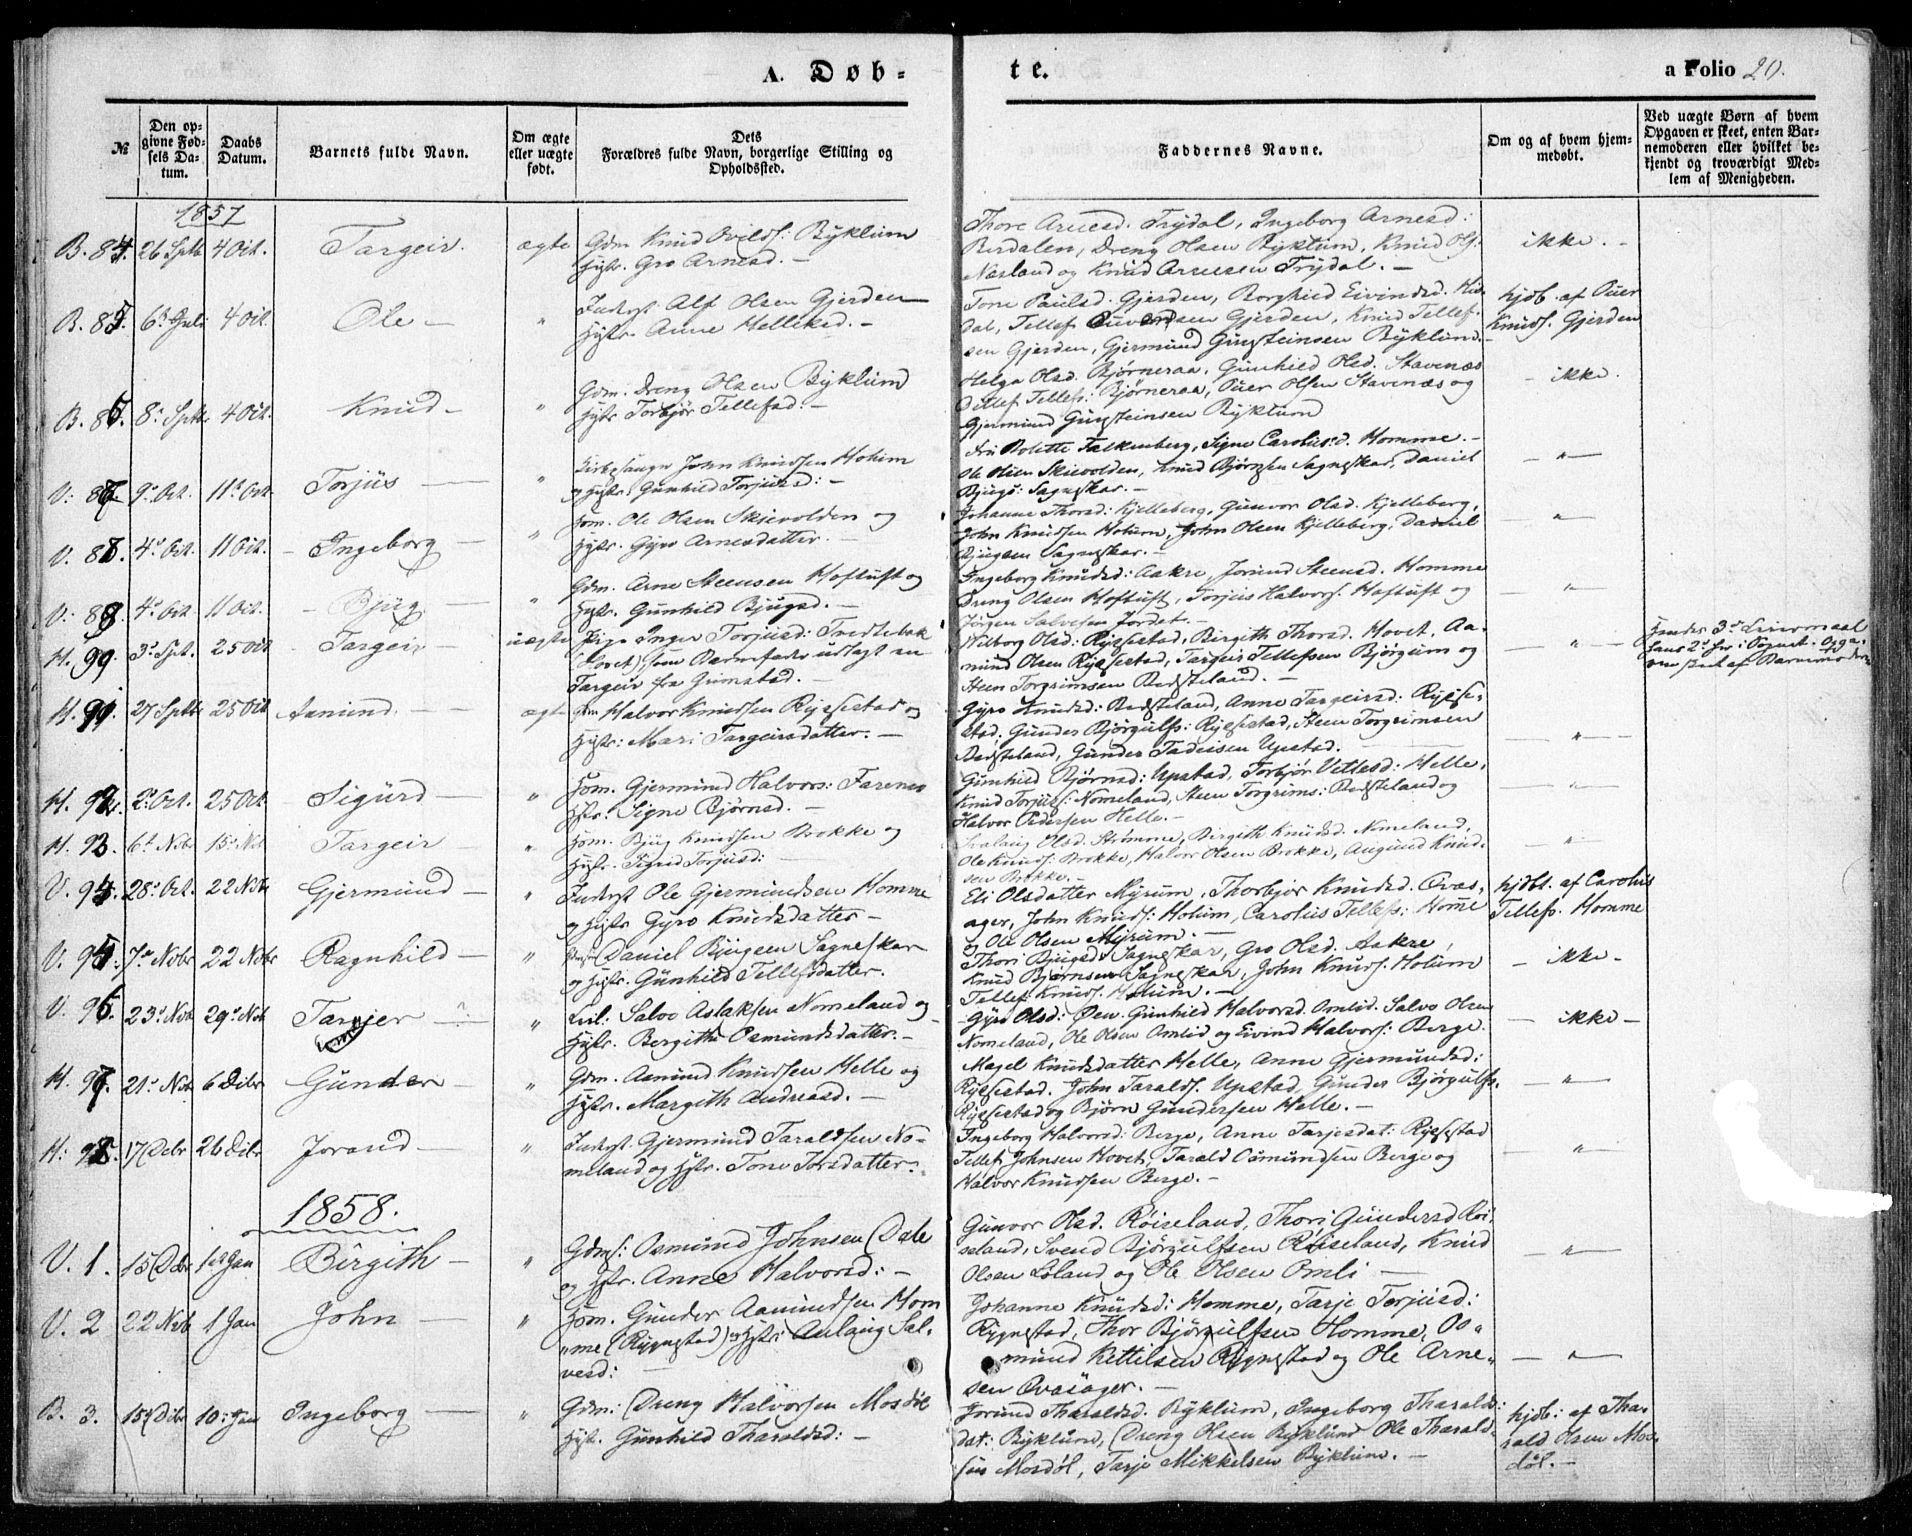 A. Døb-
te.
a Folio 20.
№
Den op-
givne Fød-
sels Da-
tum.
Daabs
Datum.
Barnets fulde Navn.
Om ægte
eller uægte
født.
Dets
Forældres fulde Navn, borgerlige Stilling og
Opholdssted.
Faddernes Navne.
Om og af hvem hjem-
medøbt.
Ved uægte Børn af hvem
Opgaven er skeet, enten Bar-
nemoderen eller hvilket be-
kjendt og troværdigt Med-
lem af Menigheden.
1857
B. 84. 26 Sptb 4 Oct. Targeir. ægte
Gdm Knud Byklum
Hustr. Gro Arnesd. -
Thore Arnesd. Trydal, Ingeborg Arnesd:
Berdalen, Dreng Olsen Byklum, Knud Ols.
Nesland og Knud Arnesen Trydal. -
ikke. -
B. 85. 6 Juli 4 Oct. Ole - "
Inderst Alf Olsen Gjerden
Hustr. Anne Helliksd. -
Tone Paulsd. Gjerden, Borghild Eivindsd. Hu-
dal, Tellef Gjerden, Knud Tellef-
sen Gjerden, Gjermund Gunsteinsen Byklum. -
hjdb. af Ouer
Knuds. Gjerden
B. 86. 8 Sptb. 4 Oct. Knud - "
Gdm. Dreng Olsen Byklum
Hustr Torbjør Tellefsd. -
Helga Olsd. Bjørneraa, Gunhild Olsd. Stavenæs
Ditlef Tellefs. Bjørneraa, Ouer Olsen Stavenæs og
Gjermund Gunsteinsen Byklum
- ikke.
V. 87. 9 Oct. 11 Oct. Torjus - "
Kirkesanger John Knudsen Holum
og Hustr. Gunhild Torjusd: -
Fru Bolette Falkenberg, Signe Carolusd. Homme. -
Ole Olsen Skievolden, Knud Bjørnsen Sagneskar, Daniel
Bjugs: Sagneskar. -
- " -
V. 88. 4 Oct. 11 Oct. - Ingeborg - "
Hom. Ole Olsen Skievolden og
Hustr. Gyro Arnesdatter. -
Johanne Thorsd: Kjelleberg, Gunvor Olsd. Kjelleberg,
John Knudsen Holum, John Olsen Kjelleberg, Daniel
Bjugsen Sagneskar. -
- " -
V. 89. 4 Oct. 11 Oct. - Bjug - "
Gdm. Arne Steensen Hoftuft og
Hustr. Gunhild Bjugsd. -
Ingeborg Knudsd: Aakre, Jorund Steensd. Homme
Dreng Olsen Hoftuft, Torjus Halvors. Hoftuft og
Jørgen Salvesen Jordet. -
- " -
H. 90. 3 Spt. 25 Oct Targeir - uægte
Pige Inger Torjusd: Tvedtebak
(Hovet) som Barnefader udlagt en
Targeir fra Grimstad. -
Wilborg Olsd: Rygsestad, Birgith Thorsd. Hovet, Aa-
mund Olsen Rygsestad, Targeir Tellefsen Bjørgum og
Steen Torgrimsen Bedsteland. -
- " -
Hendes 3 Leiermaal
Hans 2 i Sognet. Opga-
ven skeet af Barnemoderen
H. 91. 27 Sptb 25 Oct Aamund. - ægte
Gdm Halvor Knudsen Rygsestad og
Hustr: Mari Targeirsdatter. -
Gyro Knudsd: Bedsteland, Anne Targeirsd: Rygse-
stad, Gunder Bjørgulfs: Rygsestad, Steen Torgrimsen
Bedsteland, Gunder Tadeisen Upstad.
- " -
H. 92. 2 Oct. 25 Oct Sigurd - "
Hom. Gjermund Halvors: Farenes
Hstr. Signe Bjørnsd. -
Gunhild Bjørnsd: Upstad, Torbjør Vettesd: Helle,
Knud Torjus: Nomeland, Steen Torgrims: Bedsteland og
Halvor Pedersen Helle. -
- " -
H. 93. 6 Nbr 15 Nov Targeir - "
Hom. Bjug Knudsen Brokke og
Hustr. Sigrid Torjusd: -
Svalaug Olsd. Strømme, Birgith Knudsd. Nomeland,
Ole Knuds: Brokke, Halvor Olsen Brokke, Aanund Knud-
sen Brokke. -
"
V. 94. 28 Oct. 22 Nbr. Gjermund - "
Inderst Ole Gjermundsen Homme
og Hustr Gyro Knudsdatter -
Eli Olsdatter Myrum, Thorbjør Knudsd. Qvas-
ager, John Knuds: Holum, Carolus Tellefs: Homme
og Ole Olsen Myrum. -
hjdbt. af Carolus
Tellefs. Homme
V. 95. 7 Nobr 22 Nobr Ragnhild - "
Daniel Bjugsen Sagneskar
og Hustr. Gunhild Tellefsdatter.
Thori Bjugsd: Sagneskar, Gro Olsd. Aakre,
Knud Bjørnsen Sagneskar, John Knuds: Holum
Tellef Knuds. Holum. -
- ikke -
V. 96. 23 Nob 29 Nob Tarjer - "
Salve Aslaksen Nomeland og
Hustr. Bergithe Osmundsdatter. -
Gyro Olsd: Gunhild Halvorsd. Omlid, Salve Olsen
Nomeland, Ole Olsen Omlid og Eivind Halvors: Berge.
- ikke -
H. 97. 21 Nob 6 Debr Gunder - "
Gdm. Aamund Knudsen Helle og
Hustr. Margith Andreasd. -
Magel Knudsdatter Helle, Anne Gjermundsd:
Rygsestad, John Taralds. Upstad, Gunder Bjørgulfs.
Rygsestad og Bjørn Gundersen Helle. -
- " -
H: 98. 17 Debr 26 Debr Jorand - "
Inderst Gjermund Taraldsen No-
meland og Hstr. Tone Torsdatter. -
Ingeborg Halvorsd: Berge, Anne Tarjesdat: Rygsestad
Tellef Johnsen Hovet, Tarald Osmundsen Berge og
Halvor Knudsen Berge. -
- " -
1858.
V. 1. 15 Debr 1 Jan Birgith - "
Gdm: Osmund Johnsen Dale
og Hstr. Anne Halvorsd: -
Gunvor Olsd. Røiseland, Thori Gundersd Røi-
seland, Svend Bjørgulfsen Røiseland, Knud
Olsen Løland og Ole Olsen Omli -
- " -
V. 2 22 Nob 1 Jan John - "
Hom. Gunder Aamundsen Hom
"me (Rygnestad) og Hstr: Aslaug Sal-
vesd:
Johanne Knudsd: Homme, Tarje Torjusd:
Rygnestad, Thor Bjørgulfsen Homme, Os-
mund Kettilsen Rygnestad og Ole Arne-
sen Qvasager. -
- " -
B. 3. 15 Debr 10 Jan Ingeborg - "
Gdm: Dreng Halvorsen Mosdøl
Hstr. Gunhild Tharaldsd: -
Jorund Tharaldsd. Byklum, Ingeborg Tharalds:
dat: Byklum, Dreng Olsen Byklum Ole Tharald-
sen Mosdøl, Tarje Mikkelsen Byklum. -
hjdb: af Tha-
rald Olsen Mos-
døl. -